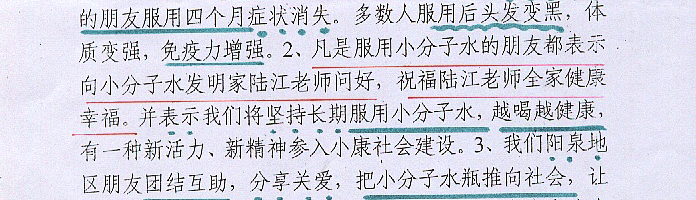 的朋友服用四个月症状消失。多数人服用后头发变黑，体
质变强，免疫力增强。2、凡是服用小分子水的朋友都表示
向小分子水发明家陆江老师问好，祝福陆江老师全家健康
幸福。并表示我们将坚持长期服用小分子水，越喝越健康，
有一种新活力、新精神参入小康社会建设。3、我们阳泉地
区朋友团结互助，分享关爱，把小分子水瓶推向社会，让